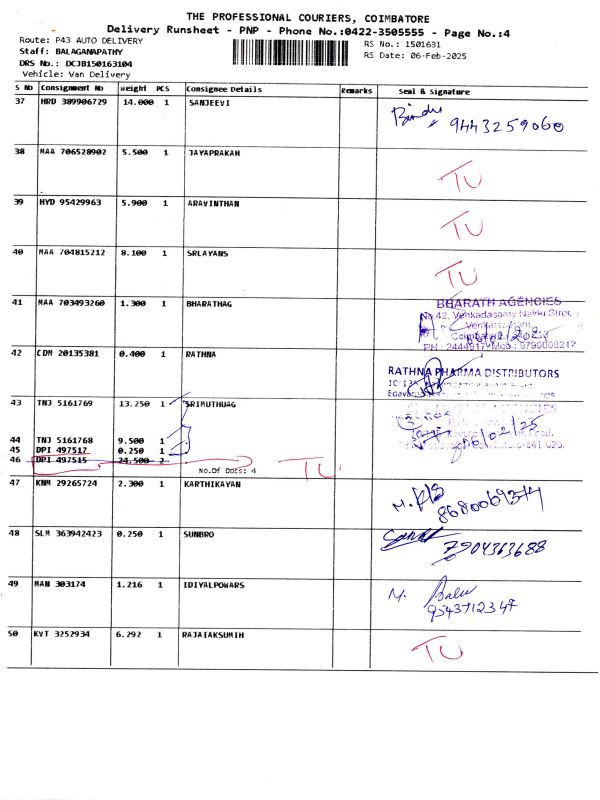 THE PROFESSIONAL COURIERS, COIMBATORE
Delivery Runsheet - PNP - Phone No.:0422-3505555 - Page No.:4
Route: P43 AUTO DELIVERY
RS No.: 1501631
Staff: BALAGANAPATHY
RS Date: 06-Feb-2025
DRS No.: DCJB150163104
Vehicle: Van Delivery
S No Consignment No Weight PCS Consignee Details Remarks Seal & Signature
37 HRD 389906729 14.000 1 SANJEEVI
Bindu
9443259060
38 MAA 706528902 5.500 1 JAYAPRAKAH
TU
39 HYD 95429963 5.900 1 ARAVINTHAN
TU
40 MAA 704815212 8.100 1 SRLAYANS
TU
41 MAA 703493260 1.300 1 BHARATHAG
BHARATH AGENCIES
No.42, Venkadasamy Naidu Street
PH: 2444917 Mob: 9790008212
42 CDM 20135381 0.400 1 RATHNA
RATHNA PHARMA DISTRIBUTORS
43 TNJ 5161769 13.250 1 SRIMUTHUAG
06/02/25
44 TNJ 5161768 9.500 1
45 DPI 497517 0.250 1
46 DPI 497515 24.500 2
No.Of Docs: 4
TU
47 KNM 29265724 2.300 1 KARTHIKAYAN
48 SLM 363942423 0.250 1 SUNBRO
7904363688
49 MAN 303174 1.216 1 IDIYALPOWARS
M. Balu
9543712347
50 KVT 3252934 6.292 1 RAJAIAKSUMIH
TU